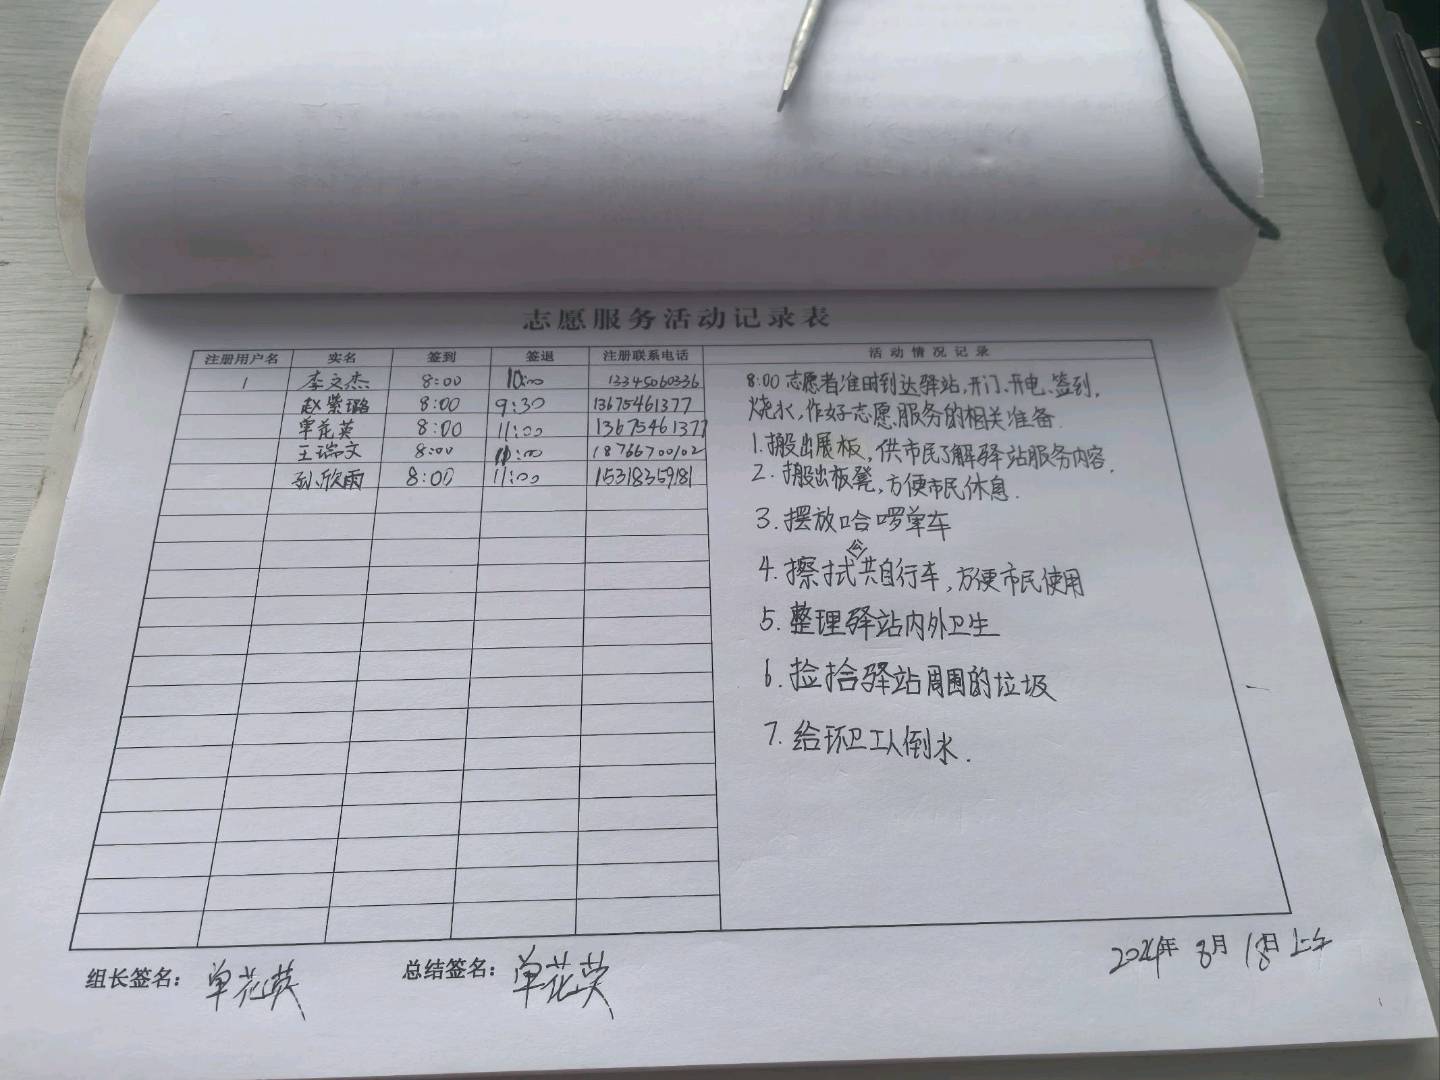 志愿服务活动记录表
注册用户名 实名 签到 签退 注册联系电话 活动情况记录
1 李文杰 8:00 10:00 13345060336
赵紫璐 8:00 9:30 13675461377
单花英 8:00 11:00 13675461377
王瑞文 8:00 10:00 18766700102
孙欣雨 8:00 11:00 15318359181
8:00 志愿者准时到达驿站,开门、开电、签到,
烧水,作好志愿服务的相关准备.
1.搬出展板,供市民了解驿站服务内容.
2.搬出板凳,方便市民休息.
3.摆放哈啰单车
4.擦拭公共自行车,方便市民使用
5.整理驿站内外卫生
6.捡拾驿站周围的垃圾
7.给环卫工人倒水.
组长签名:单花英 总结签名:单花英 2024年 8月 18日 上午